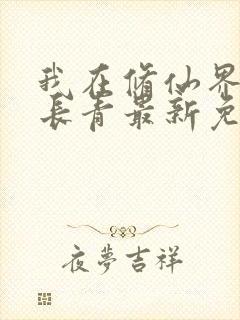 我在修仙界
长青最新免
夜夢吉祥